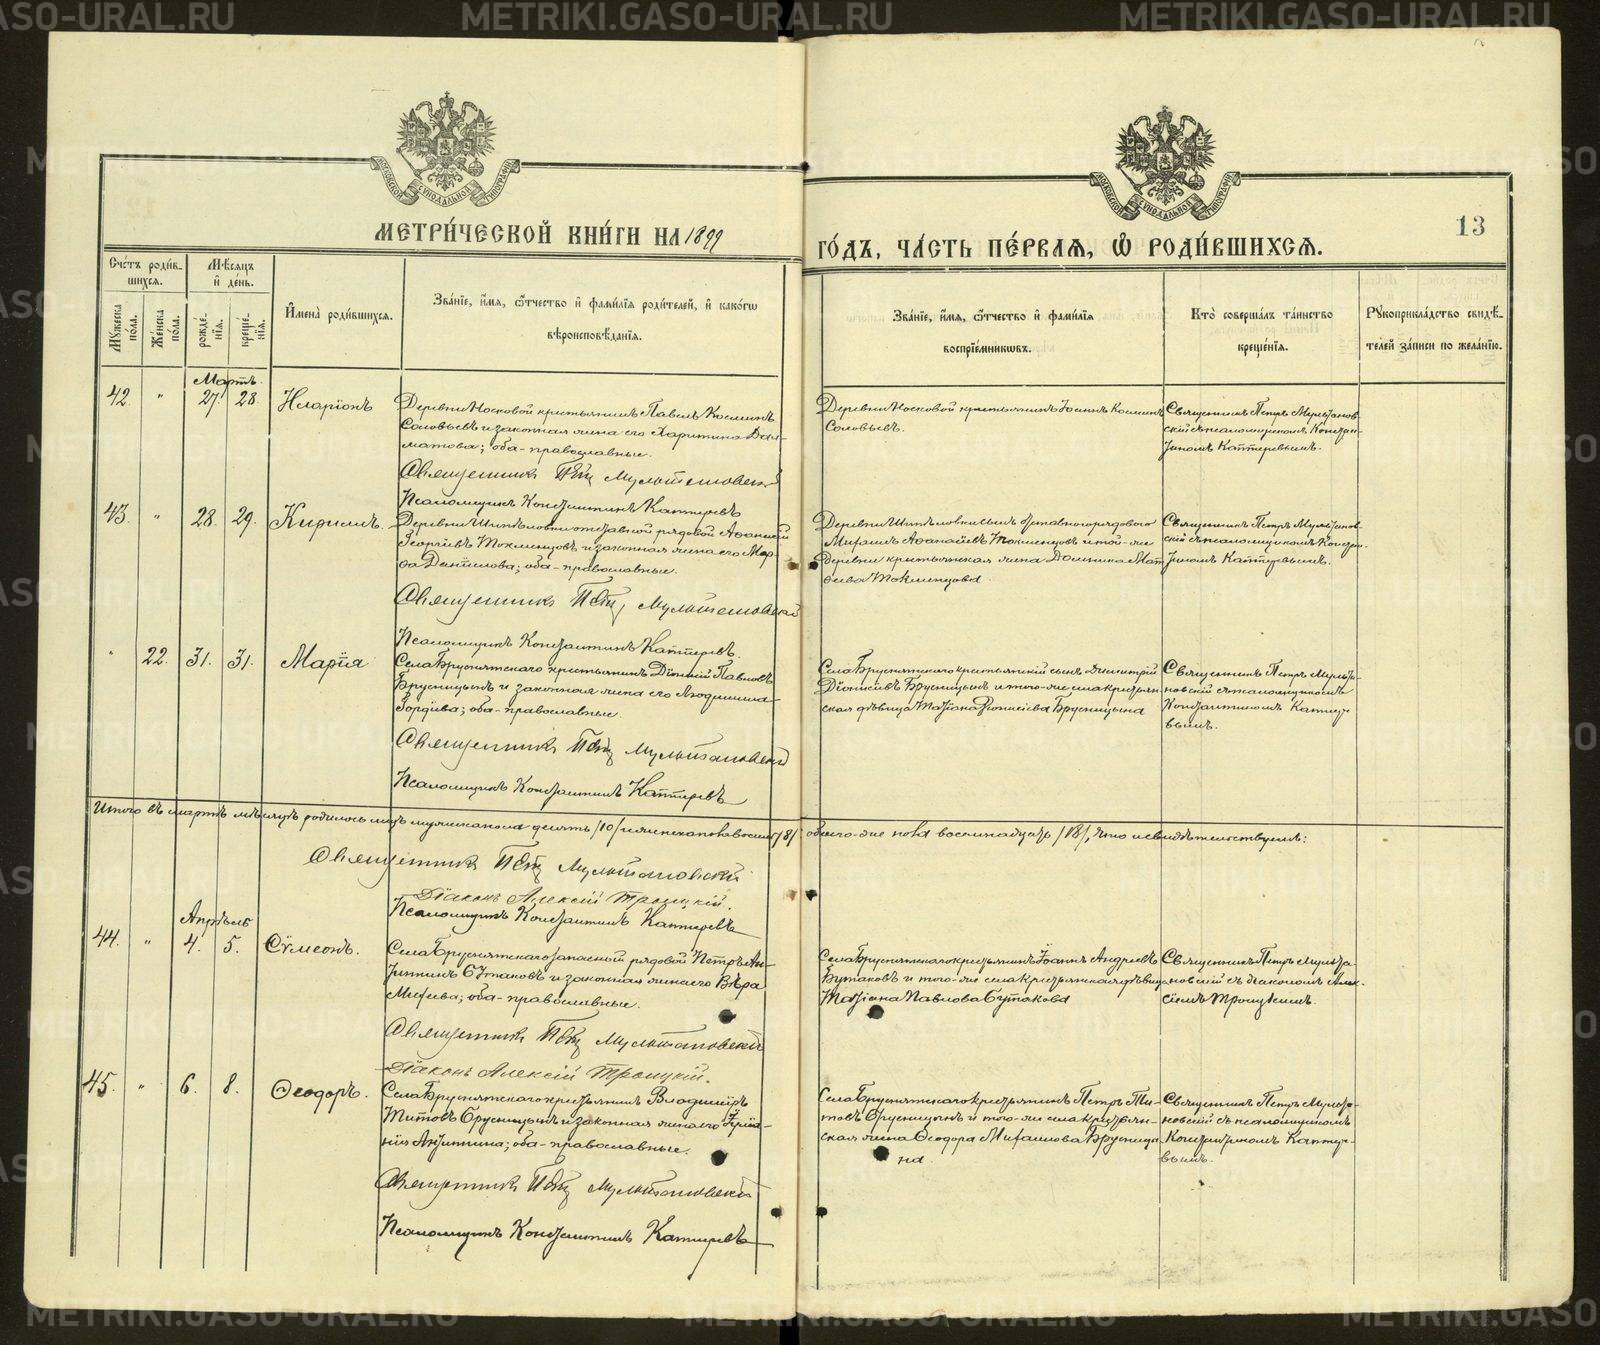 МЕТРИ́ЧЕСКОЙ КНИ́ГИ НА 1899
ГО́ДЪ, ЧА́СТЬ ПЕ́РВАЯ, Ѡ҆ РОДИ́ВШИХСЯ.
13
Сче́тъ роди́в-
шихся.
Мꙋ́жеска
по́ла.
Же́нска
по́ла.
Мѣ́сяцъ
и҆ де́нь.
рожде́-
нїя.
креще́-
нїя.
И҆мена̀ роди́вшихся.
Зва́нїе, и҆́мя, ѻ҆́тчество и҆ фами́лїя роди́телей, и҆ како́гѡ
вѣроисповѣ́данїя.
Зва́нїе, и҆́мя, ѻ҆́тчество и҆ фами́лїя
воспрїе́мникѡвъ.
Кто̀ соверша́лъ та́инство
креще́нїя.
Рꙋкоприкла́дство свидѣ́-
телей за́писи по жела́нїю.
Мартъ.
42. " 27. 28. Иларіонъ
Деревни Носковой крестьянинъ Павелъ Косминъ
Соловьевъ и законная жена его Харитина Дал-
матова; оба - православные.
Священникъ Петръ Мультановскій
Псаломщикъ Константинъ Каптеревъ
Деревни Носковой крестьянинъ Іоаннъ Косминъ
Соловьевъ.
Священникъ Петръ Мультанов-
скій съ псаломщикомъ Констан-
тиномъ Каптеревымъ.
43. " 28. 29. Кириллъ.
Деревни отставной рядовой Аѳанасій
Георгіевъ Токменцовъ и законная жена его Мар-
ѳа Данилова; оба - православные.
Священникъ Петръ Мультановскій
Псаломщикъ Константинъ Каптеревъ.
Деревни сынъ отставного рядового
Михаилъ Аѳанасіевъ Токменцовъ и той-же
деревни крестьянская жена Домника Мат-
ѳеева Токменцова.
Священникъ Петръ Мультанов-
скій съ псаломщикомъ Констан-
тиномъ Каптеревымъ.
" 22. 31. 31. Марія
Села Бруснятскаго крестьянинъ Діонисій Павловъ
Брусницынъ и законная жена его Людмила
Гордіева; оба - православные.
Священникъ Петръ Мультановскій
Псаломщикъ Константинъ Каптеревъ
Села Бруснятскаго крестьянскій сынъ Димитрій
Діонисіевъ Брусницынъ и того-же села крестьян-
ская дѣвица Татіана Діонисіева Брусницына
Священникъ Петръ Мульта-
новскій съ псаломщикомъ
Константиномъ Каптере-
вымъ.
Итого въ мартѣ мѣсяцѣ родилось лицъ мужеска пола десять /10/ и женска пола восемь /8/ обоего-же пола восемнадцать /18/, что и свидѣтельствуемъ:
Священникъ Петръ Мультановскій
Діаконъ Алексій Троицкій.
Псаломщикъ Константинъ Каптеревъ
Апрѣль
44. " 4. 5. Сѵмеонъ.
Села Бруснятскаго запасный рядовой Петръ Ан-
типинъ Бутаковъ и законная жена его Вѣра
Михеева; оба - православные.
Священникъ Петръ Мультановскій
Діаконъ Алексій Троицкій.
Села Бруснятскаго крестьянинъ Іоаннъ Андреевъ
Бутаковъ и того-же села крестьянская дѣвица
Татіана Павлова Бутакова
Священникъ Петръ Мульта-
новскій съ діакономъ Алек-
сіемъ Троицкимъ.
45. " 6. 8. Ѳеодоръ.
Села Бруснятскаго крестьянинъ Владиміръ
Титовъ Брусницынъ и законная жена его
Антипина; оба - православные.
Священникъ Петръ Мультановскій
Псаломщикъ Константинъ Каптеревъ
Села Бруснятскаго крестьянинъ Петръ Ти-
товъ Брусницынъ и того-же села крестьян-
ская жена Ѳеодора Михаилова Брусницы-
на
Священникъ Петръ Мульта-
новскій съ псаломщикомъ
Константиномъ Каптере-
вымъ.
METRIKI.GASO-URAL.RU